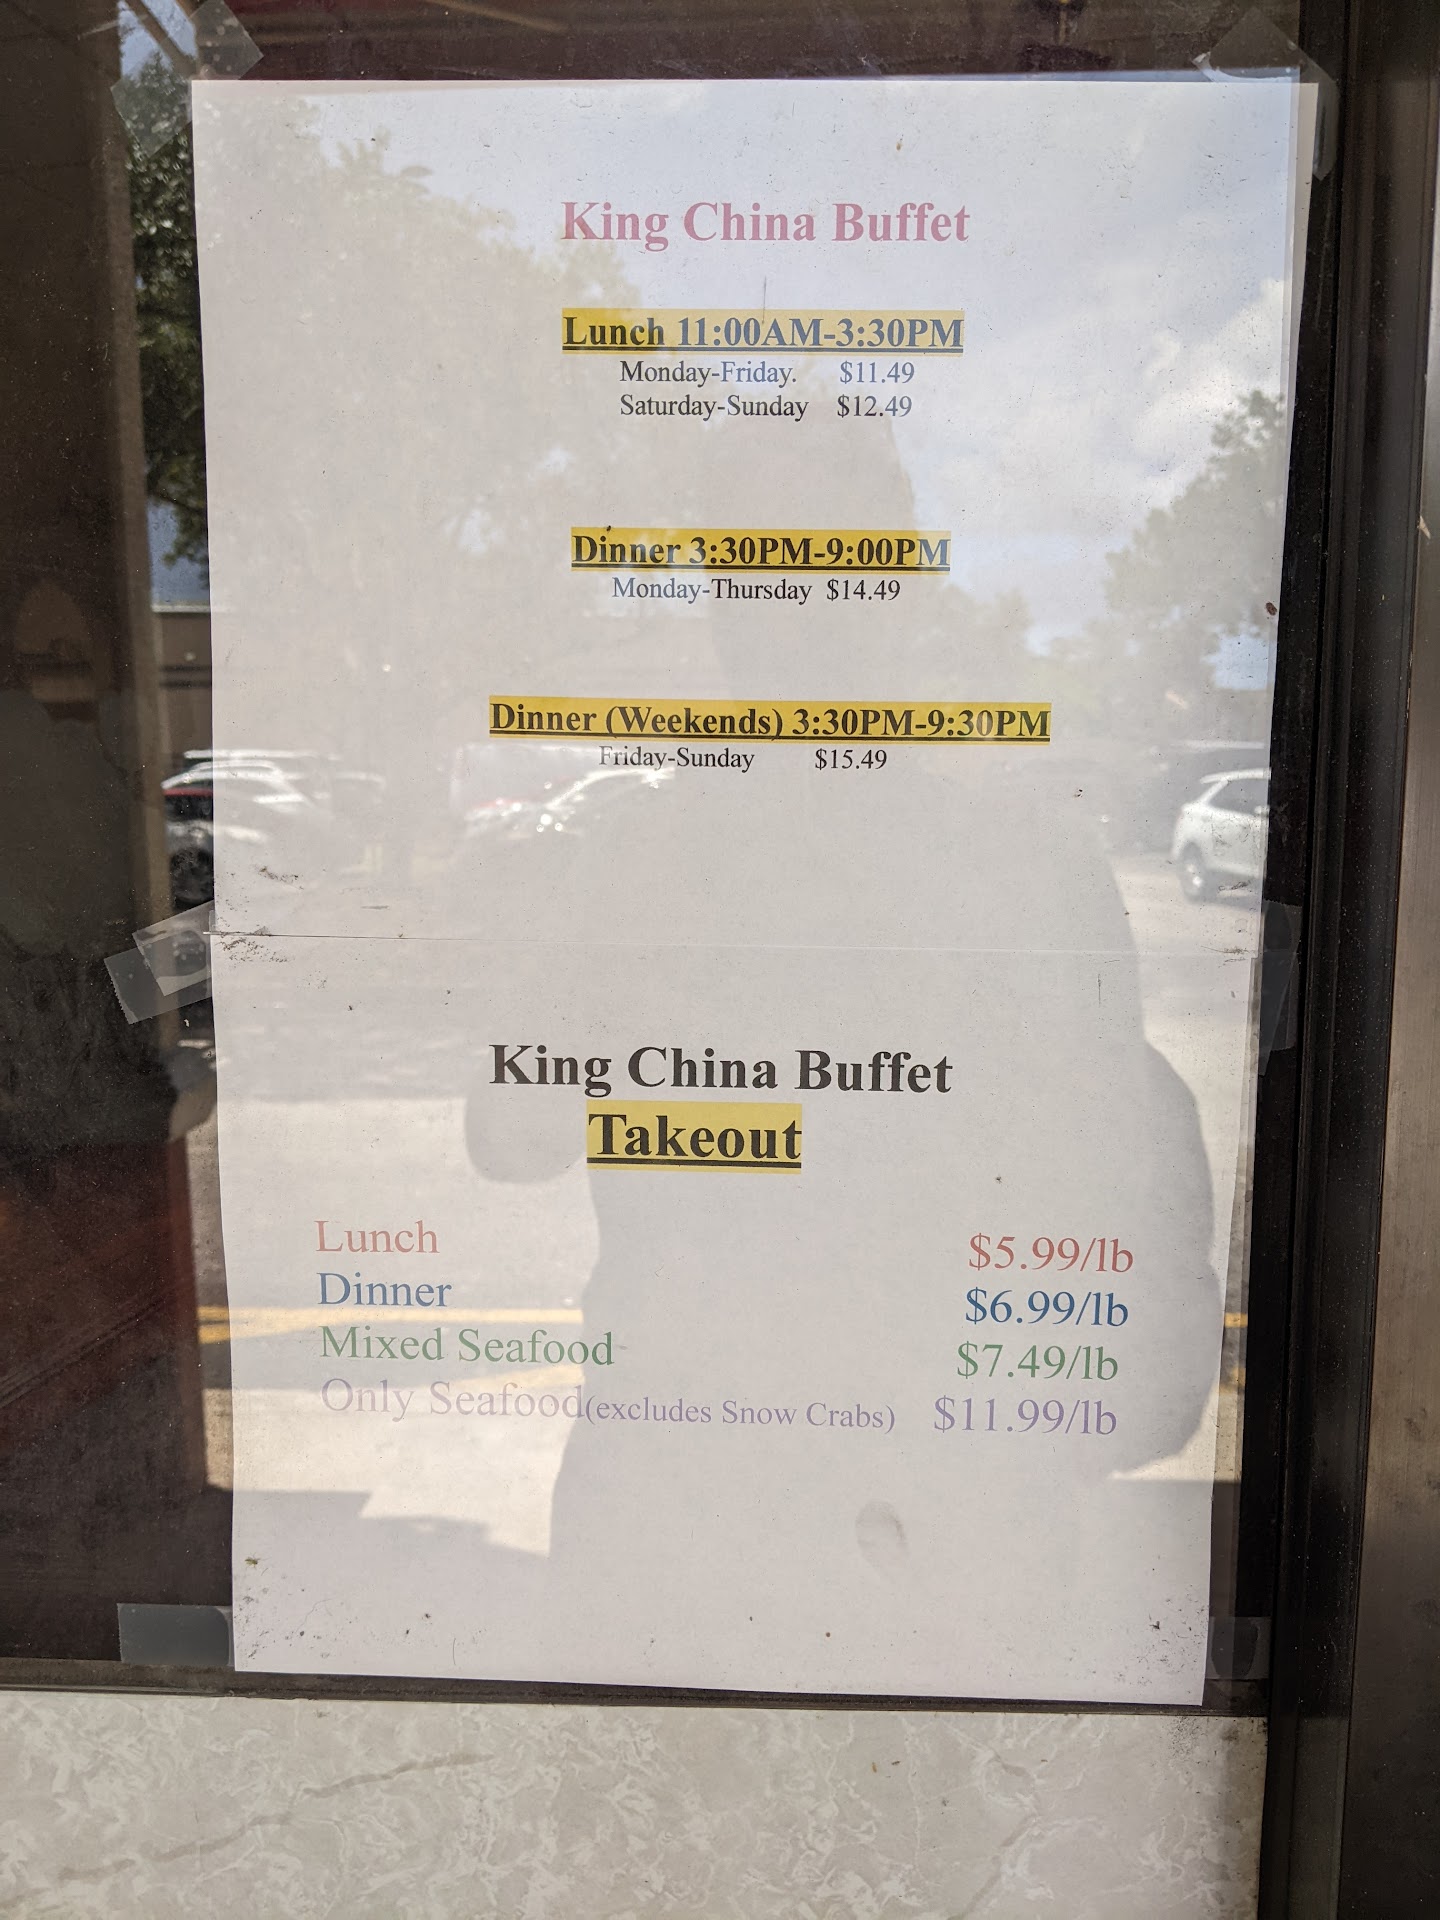 King China Buffet
Lunch 11:00AM-3:30PM
Monday-Friday. $11.49
Saturday-Sunday $12.49
Dinner 3:30PM-9:00PM
Monday-Thursday $14.49
Dinner (Weekends) 3:30PM-9:30PM
Friday-Sunday $15.49
King China Buffet
Takeout
Lunch $5.99/lb
Dinner $6.99/lb
Mixed Seafood $7.49/lb
Only Seafood(excludes Snow Crabs) $11.99/lb